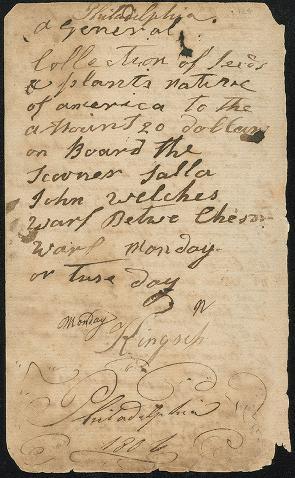 Philadelphia
a General
Collection of seeds
& plants nature
of america to the
amount 20 dollars
on Board the
Scooner Salla
John welches
warf Betwe Chesn
warf monday
or tuse day
Monday
Kingseh
Philadelphia
1806